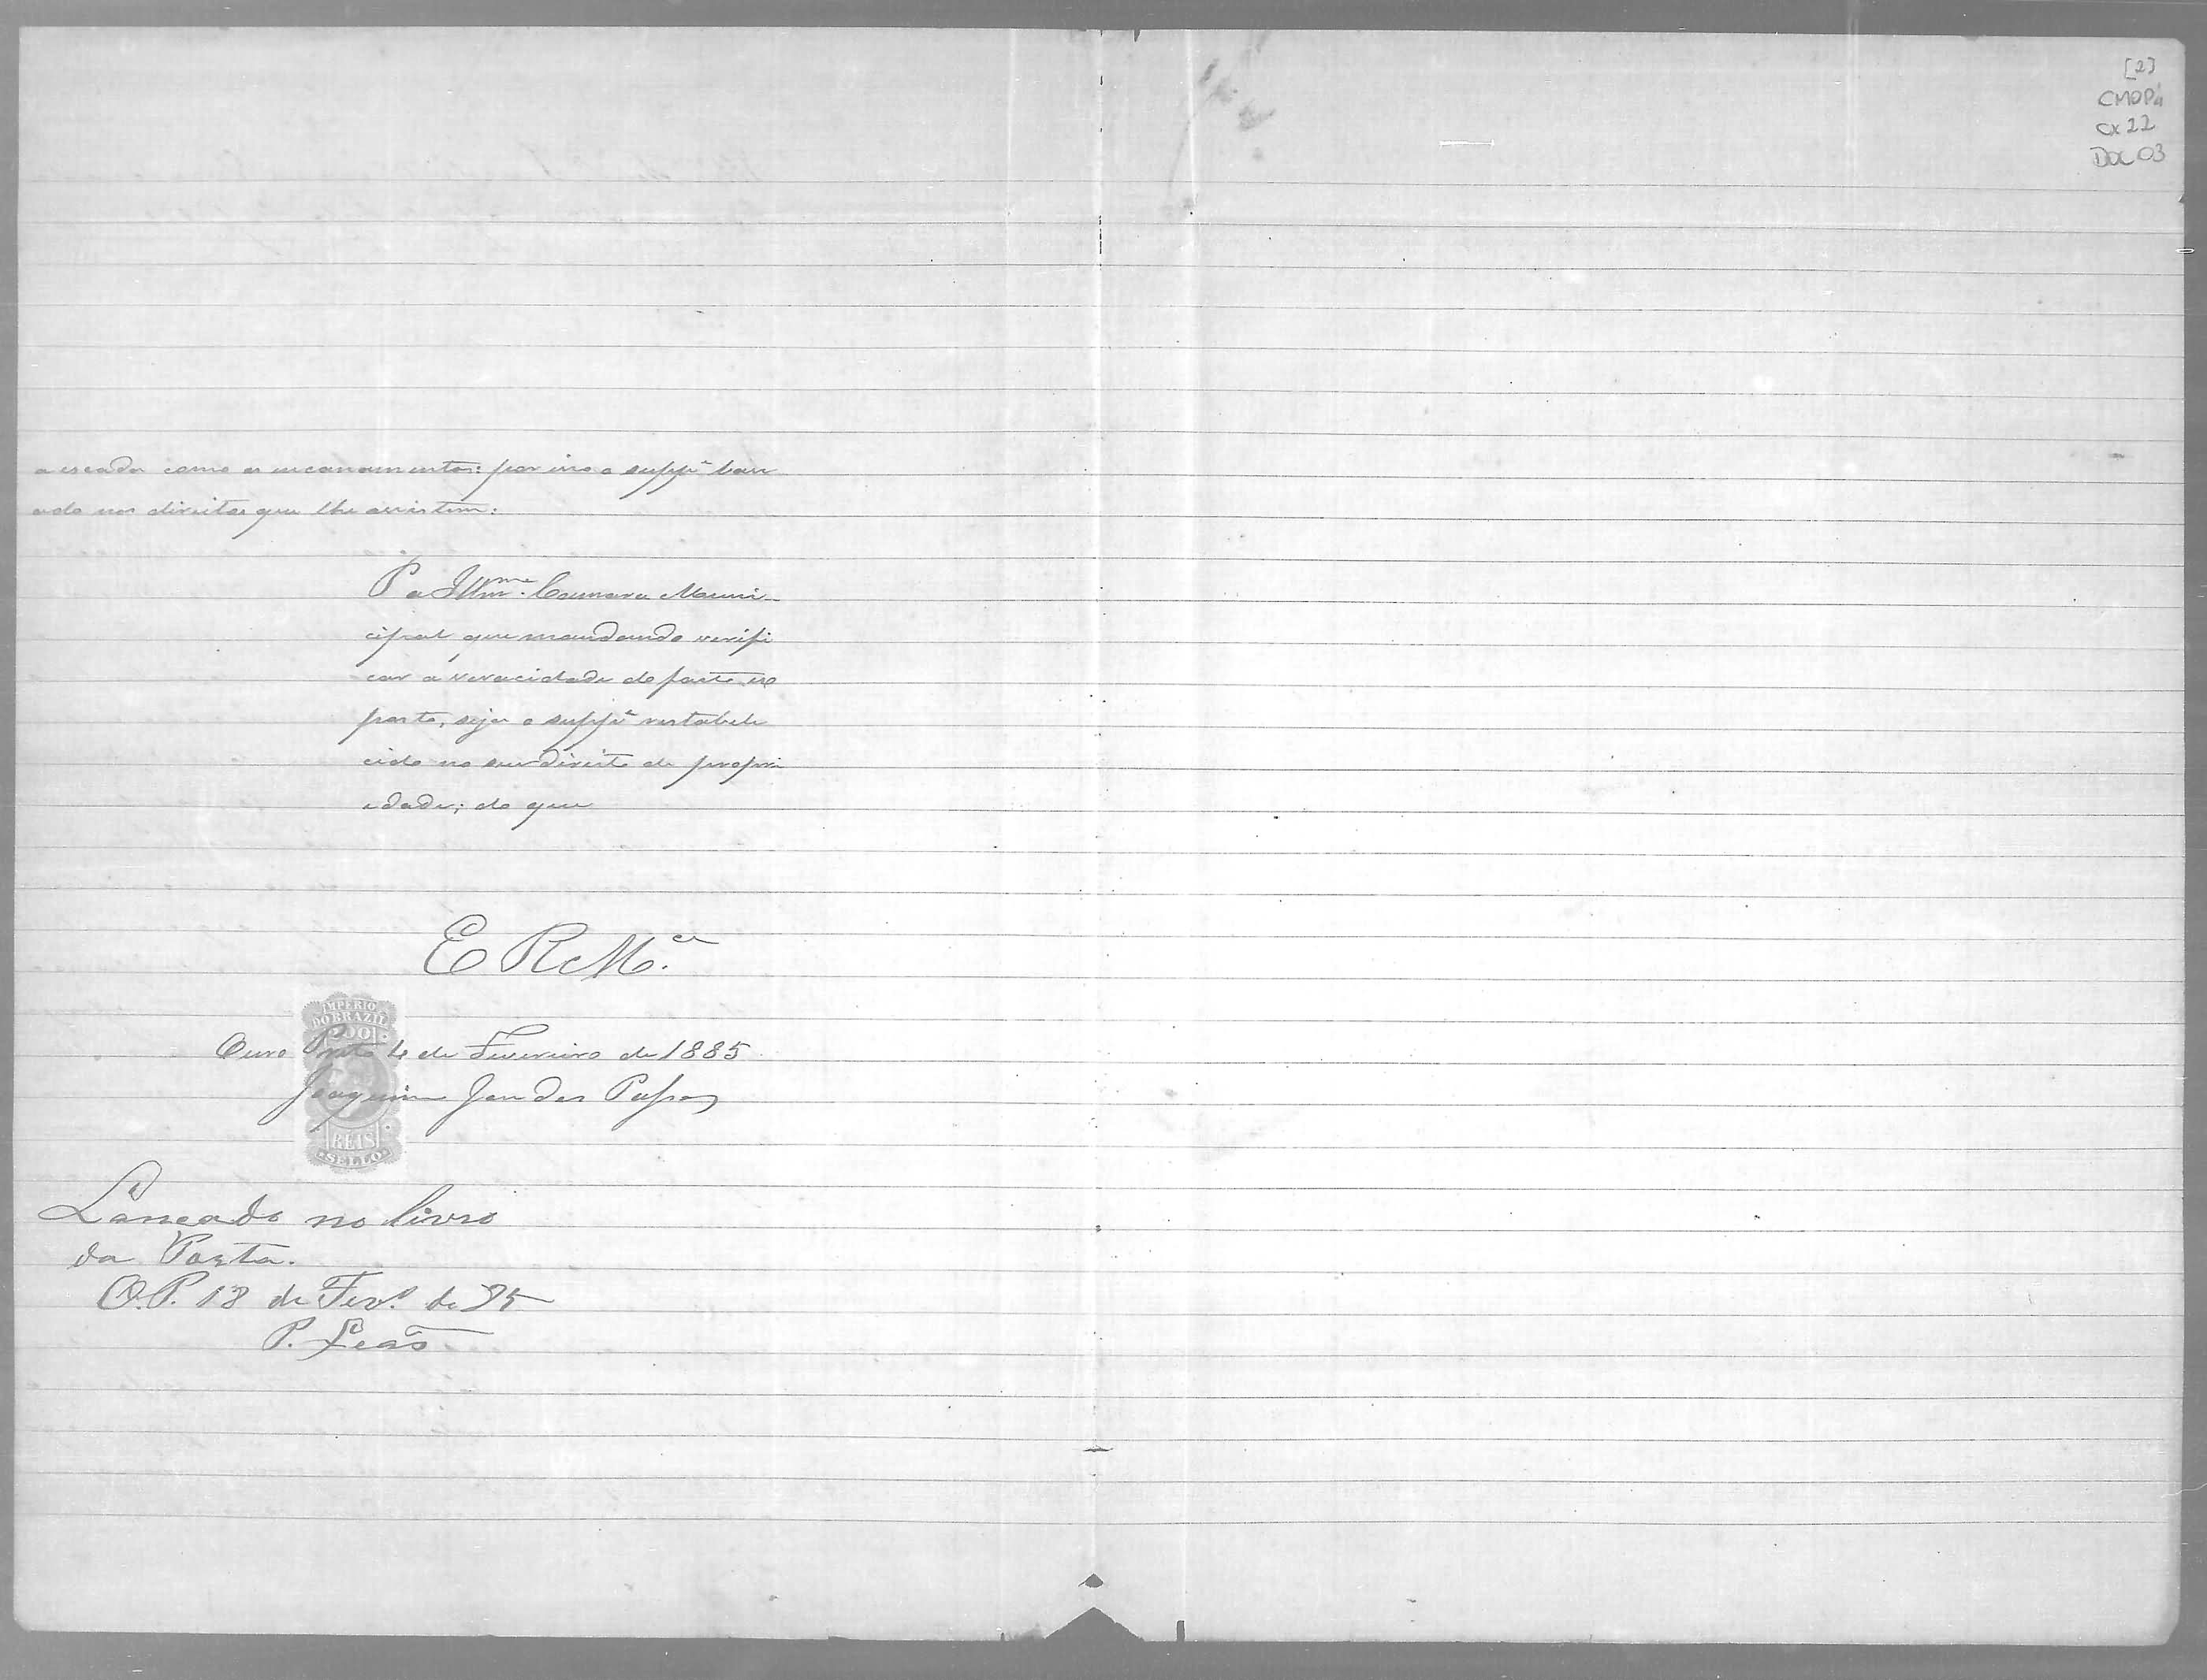 [2]
CMOP
CX 22
DOC 03
a escada como os encanamentos: por isso o supp.e base
ado nos direitos que lhe assistem:
P a Illm.ma Camara Muni-
cipal que mandando verifi
car a veracidade do facto ex
posto, seja o supp.e restabele
cido no seu direito de propri
edade; do que
E R M.ce
IMPERIO
DO BRAZIL
200
Ouro Preto 4 de Fevereiro de 1885
Joaquim José dos Passos
REIS
SELLO
Lançado no livro
da Porta.
O.P. 18 de Fev.o de 85
P. Leão